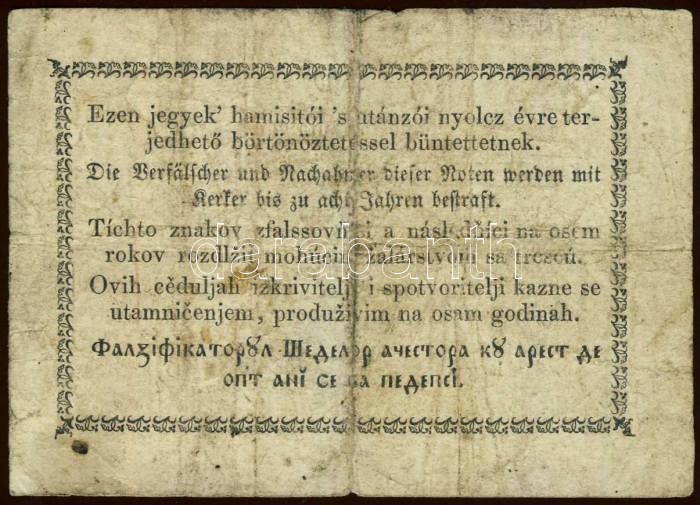 Ezen jegyek' hamisitói 's utánzói nyolcz évre ter-
jedhető börtönöztetéssel büntettetnek.
Die Verfälscher und Nachahmer dieser Noten werden mit
Kerker bis zu acht Jahren bestraft.
Tíchto znakov zfalssovníci a následňíci na osem
rokov rozdlžiť mohúcim žalárstvom sa trescú.
darabanth
Ovih cĕduljah izkrivitelji i spotvoritelji kazne se
utamničenjem, produživim na osam godinah.
Фалꙁіфікаторꙋл Шеделор ачестора кꙋ арест де
опт анĭ се ва педепсі.